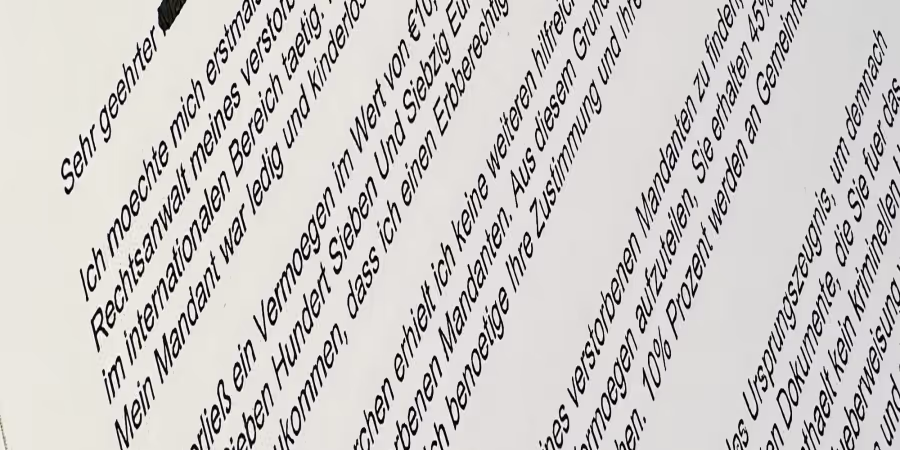 Sehr geehrter
Ich moechte mich erstmals
Rechtsanwalt meines verstorb
im internationalen Bereich taetig.
Mein Mandant war ledig und kinderlos
erließ ein Vermoegen im Wert von €10,
ieben Hundert Sieben Und Siebzig Eur
ukommen, dass ich einen Erbberechtig
rchen erhielt ich keine weiteren hilfreich
rbenen Mandanten. Aus diesem Grund
ch benoetige Ihre Zustimmung und Ihre
ines verstorbenen Mandanten zu finden
ermoegen aufzuteilen, Sie erhalten 45%
hen. 10% Prozent werden an Gemeinn
das Ursprungszeugnis, um demnach
en Dokumente, die Sie fuer das
nthaelt kein kriminellen
ueberweisung
n und